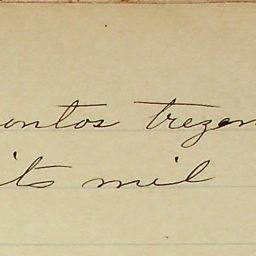 ontos trezen
its mil